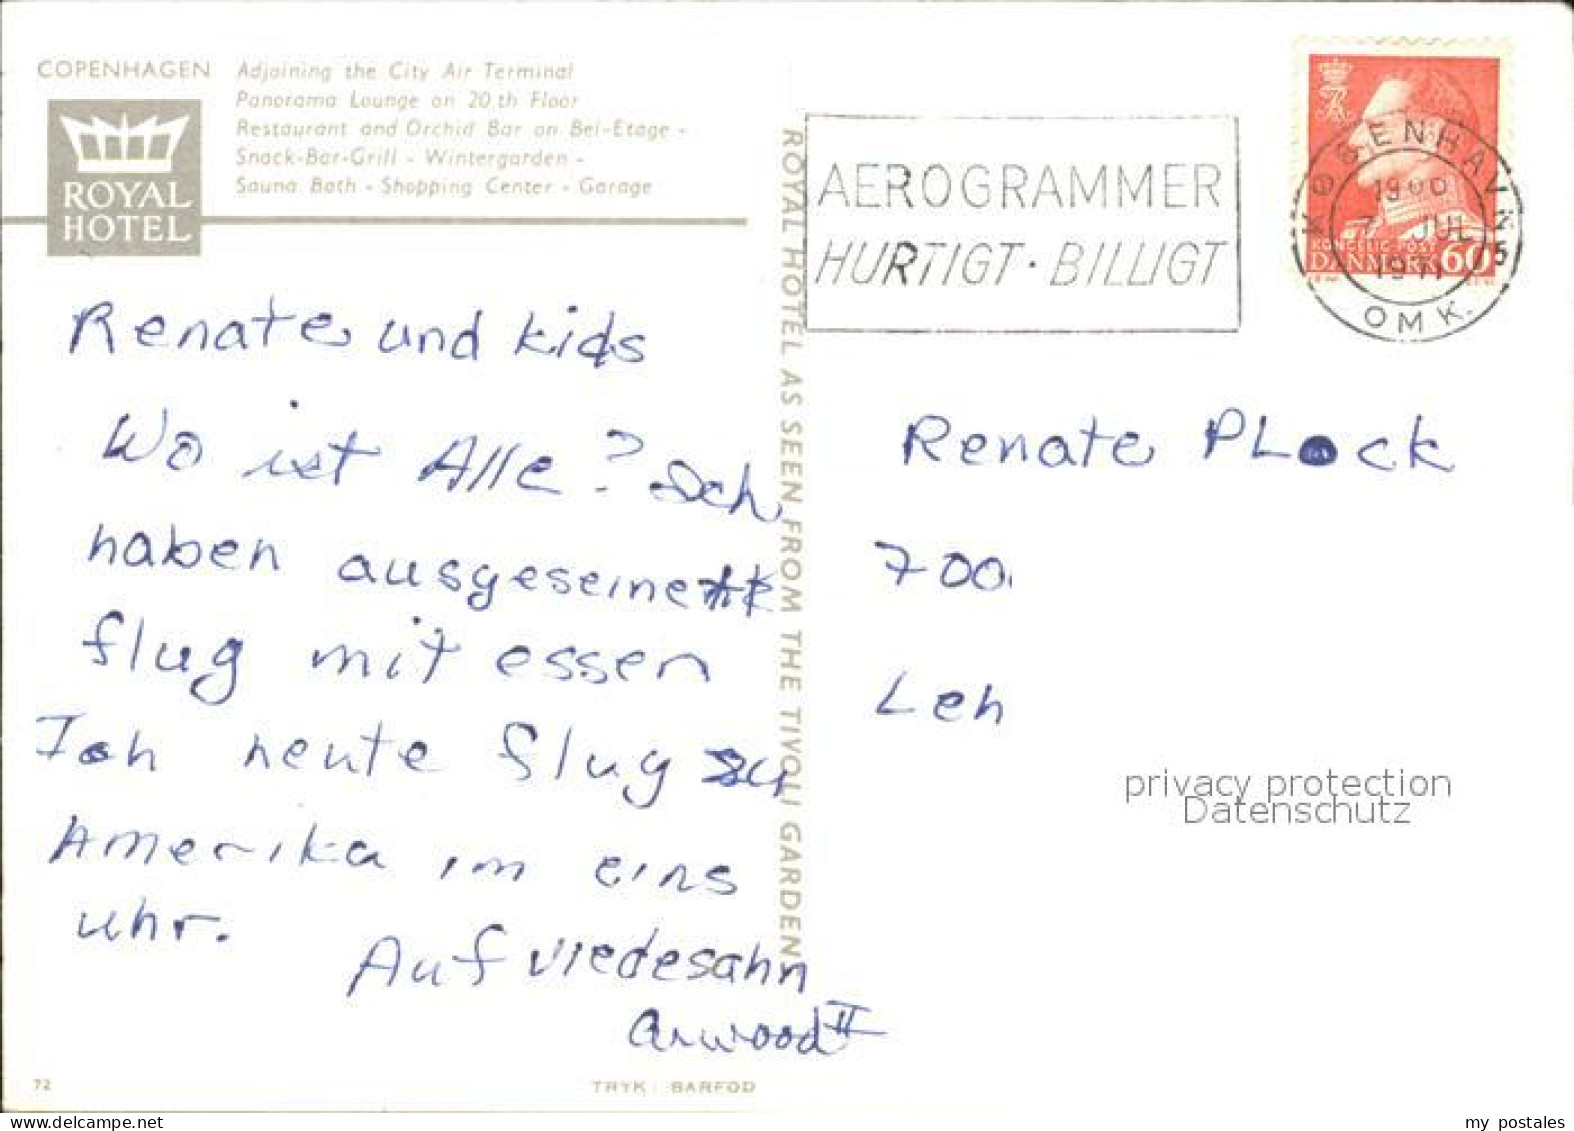 COPENHAGEN
Adjoining the City Air Terminal
Panorama Lounge on 20.th Floor
Restaurant and Orchid Bar on Bel-Etage -
Snack-Bar-Grill - Wintergarden -
Sauna Bath - Shopping Center - Garage
ROYAL
HOTEL
Renate und kids
Wo ist Alle? Ich
haben
flug mit essen
Ich heute flug zu
Amerika im eins
uhr.
Auf viedesahn
Arwood II
72
TRYK: BARFOD
ROYAL HOTEL AS SEEN FROM THE TIVOLI GARDENS
AEROGRAMMER
HURTIGT · BILLIGT
KØBENHAVN
1900
7. JUL
1971
OMK.
KONGELIG POST
DANMARK 60
Renate PLock
700
Leh
privacy protection
Datenschutz
my postales